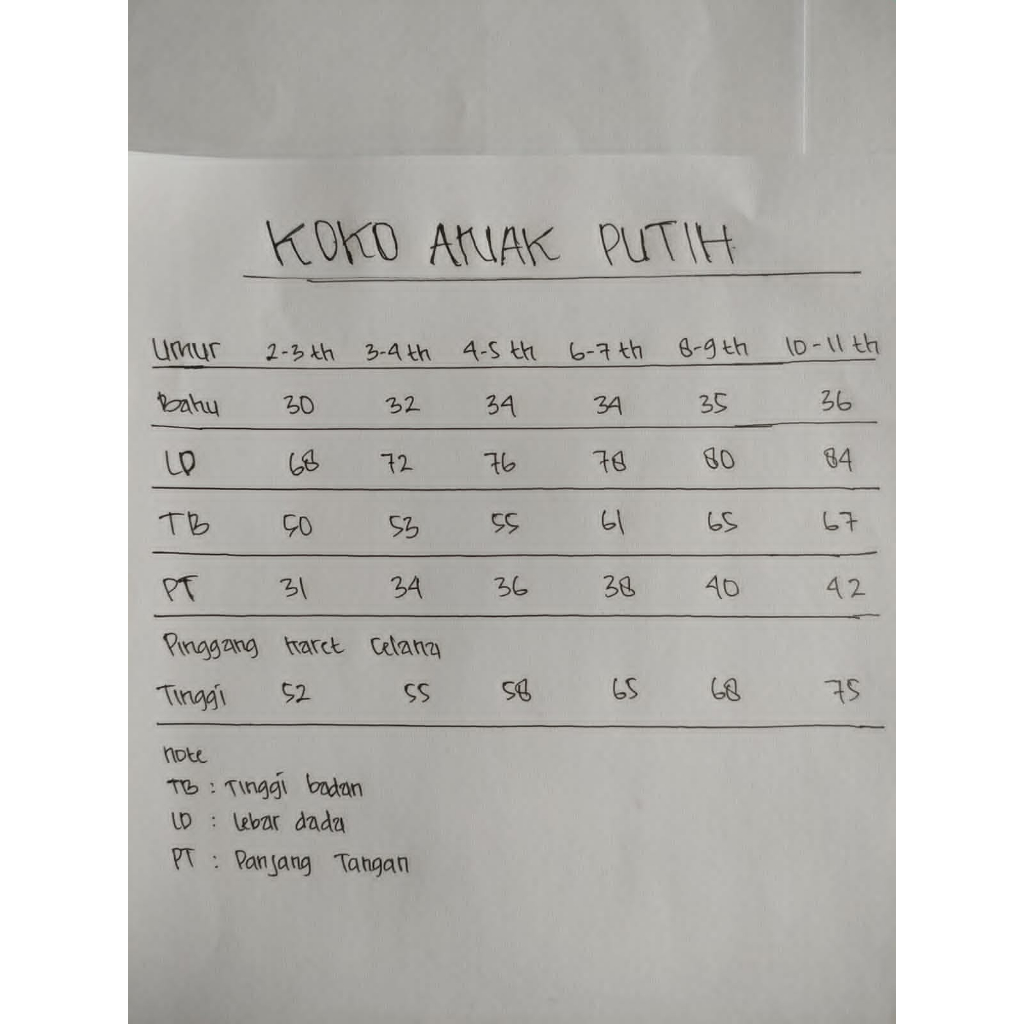 KOKO ANAK PUTIH
Umur 2-3 th 3-4 th 4-5 th 6-7 th 8-9 th 10-11 th
Bahu 30 32 34 34 35 36
LD 68 72 76 78 80 84
TB 50 53 55 61 65 67
PT 31 34 36 38 40 42
Pinggang karet celana
Tinggi 52 55 58 65 68 75
note
TB : Tinggi badan
LD : Lebar dada
PT : Panjang Tangan